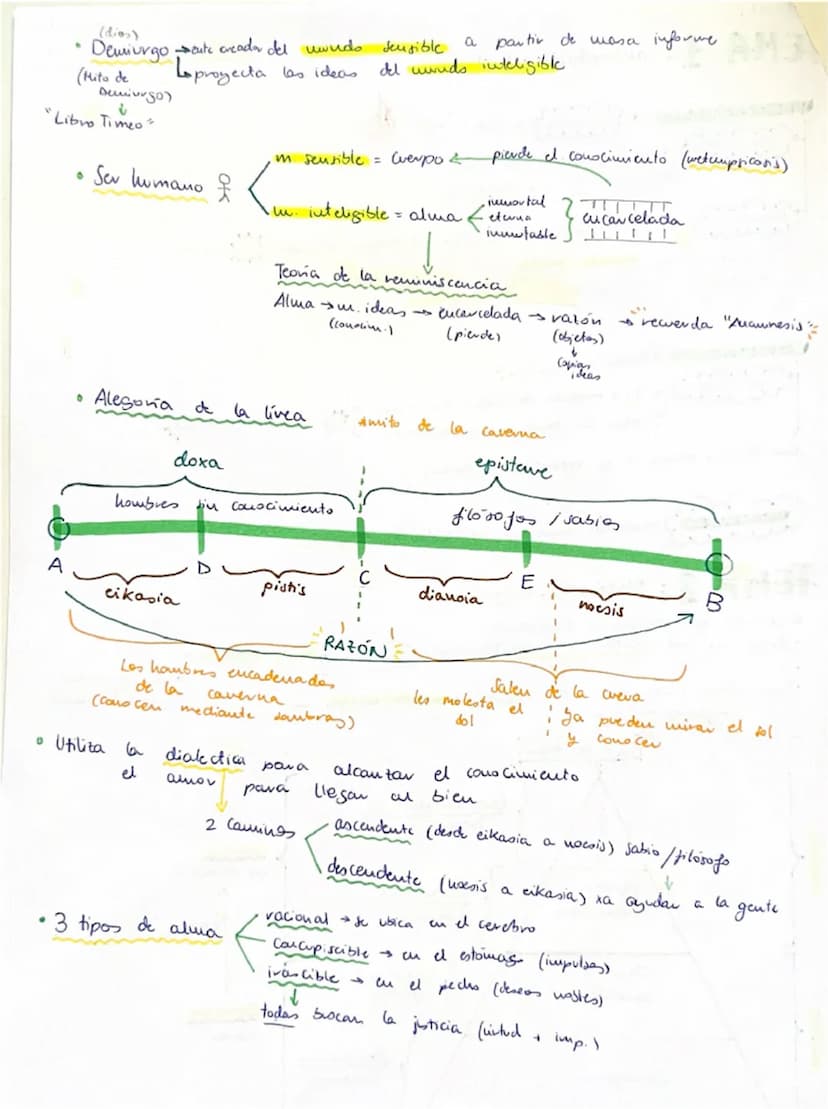 (dios)
• Demiurgo → ente creador del mundo sensible a partir de masa informe
(Mito de Demiurgo)
↳ proyecta las ideas del mundo inteligible
"Libro Timeo"
• Ser humano
m sensible = cuerpo ← pierde el conocimiento (metempsicosis)
m. inteligible = alma
inmortal
eterna
inmutable
encarcelada
Teoría de la reminiscencia
Alma → m. ideas → encarcelada → razón → recuerda "Anamnesis"
(conocim.) (pierde) (objetos)
copias
ideas
• Alegoría de la línea
*mito de la caverna
doxa
episteme
hombres sin conocimiento
filósofos / sabios
A D C E B
eikasia pistis dianoia noesis
RAZÓN
Los hombres encadenados
de la caverna
(conocen mediante sombras)
Salen de la cueva
les molesta el sol
ya pueden mirar el sol
y conocer
• Utiliza la dialectica para alcanzar el conocimiento
el amor para llegar al bien
2 caminos
ascendente (desde eikasia a noesis) sabio / filósofo
descendente (noesis a eikasia) xa ayudar a la gente
• 3 tipos de alma
racional → se ubica en el cerebro
concupiscible → en el estómago (impulsos)
iráscible → en el pecho (deseos nobles)
todas buscan la justicia (virtud + imp.)